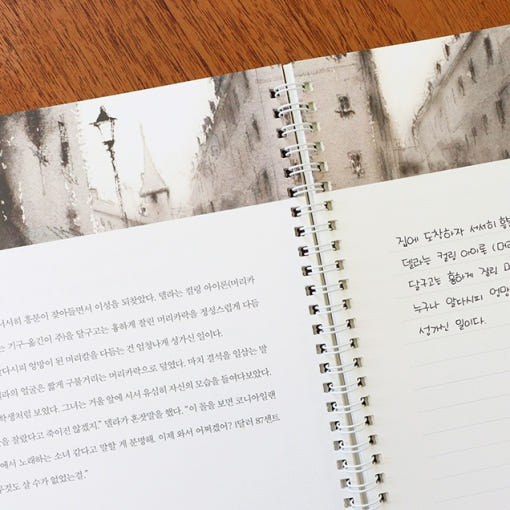 서서히 흥분이 잦아들면서 이성을 되찾았다. 델라는 컬링 아이론(머리카
는 기구-옮긴이 주)을 달구고는 흉하게 잘린 머리카락을 정성스럽게 다듬
다시피 엉망이 된 머리칼을 다듬는 건 엄청나게 성가신 일이다.
라의 얼굴은 짧게 구불거리는 머리카락으로 덮였다. 마치 결석을 일삼는 말
학생처럼 보였다. 그녀는 거울 앞에 서서 유심히 자신의 모습을 들여다보았다.
을 잘랐다고 죽이진 않겠지.” 델라가 혼잣말을 했다. “이 꼴을 보면 코니아일랜
에서 노래하는 소녀 같다고 말할 게 분명해. 이제 와서 어쩌겠어? 1달러 87센트
무것도 살 수가 없었는걸.”
집에 도착하자 서서히 흥
델라는 컬링 아이론 (머리
달구고는 흉하게 잘린 머
누구나 알다시피 엉망
성가신 일이다.